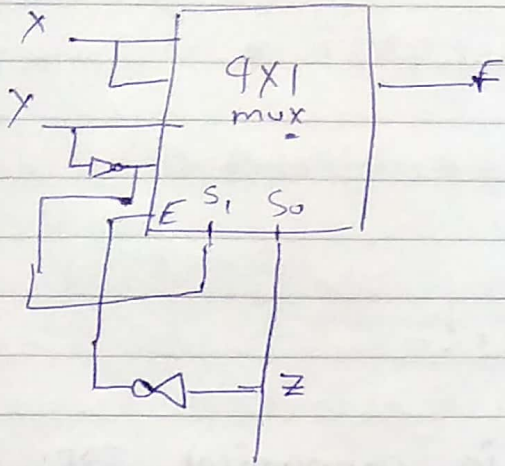 X
4X1
F
mux
Y
E S₁ S₀
Z